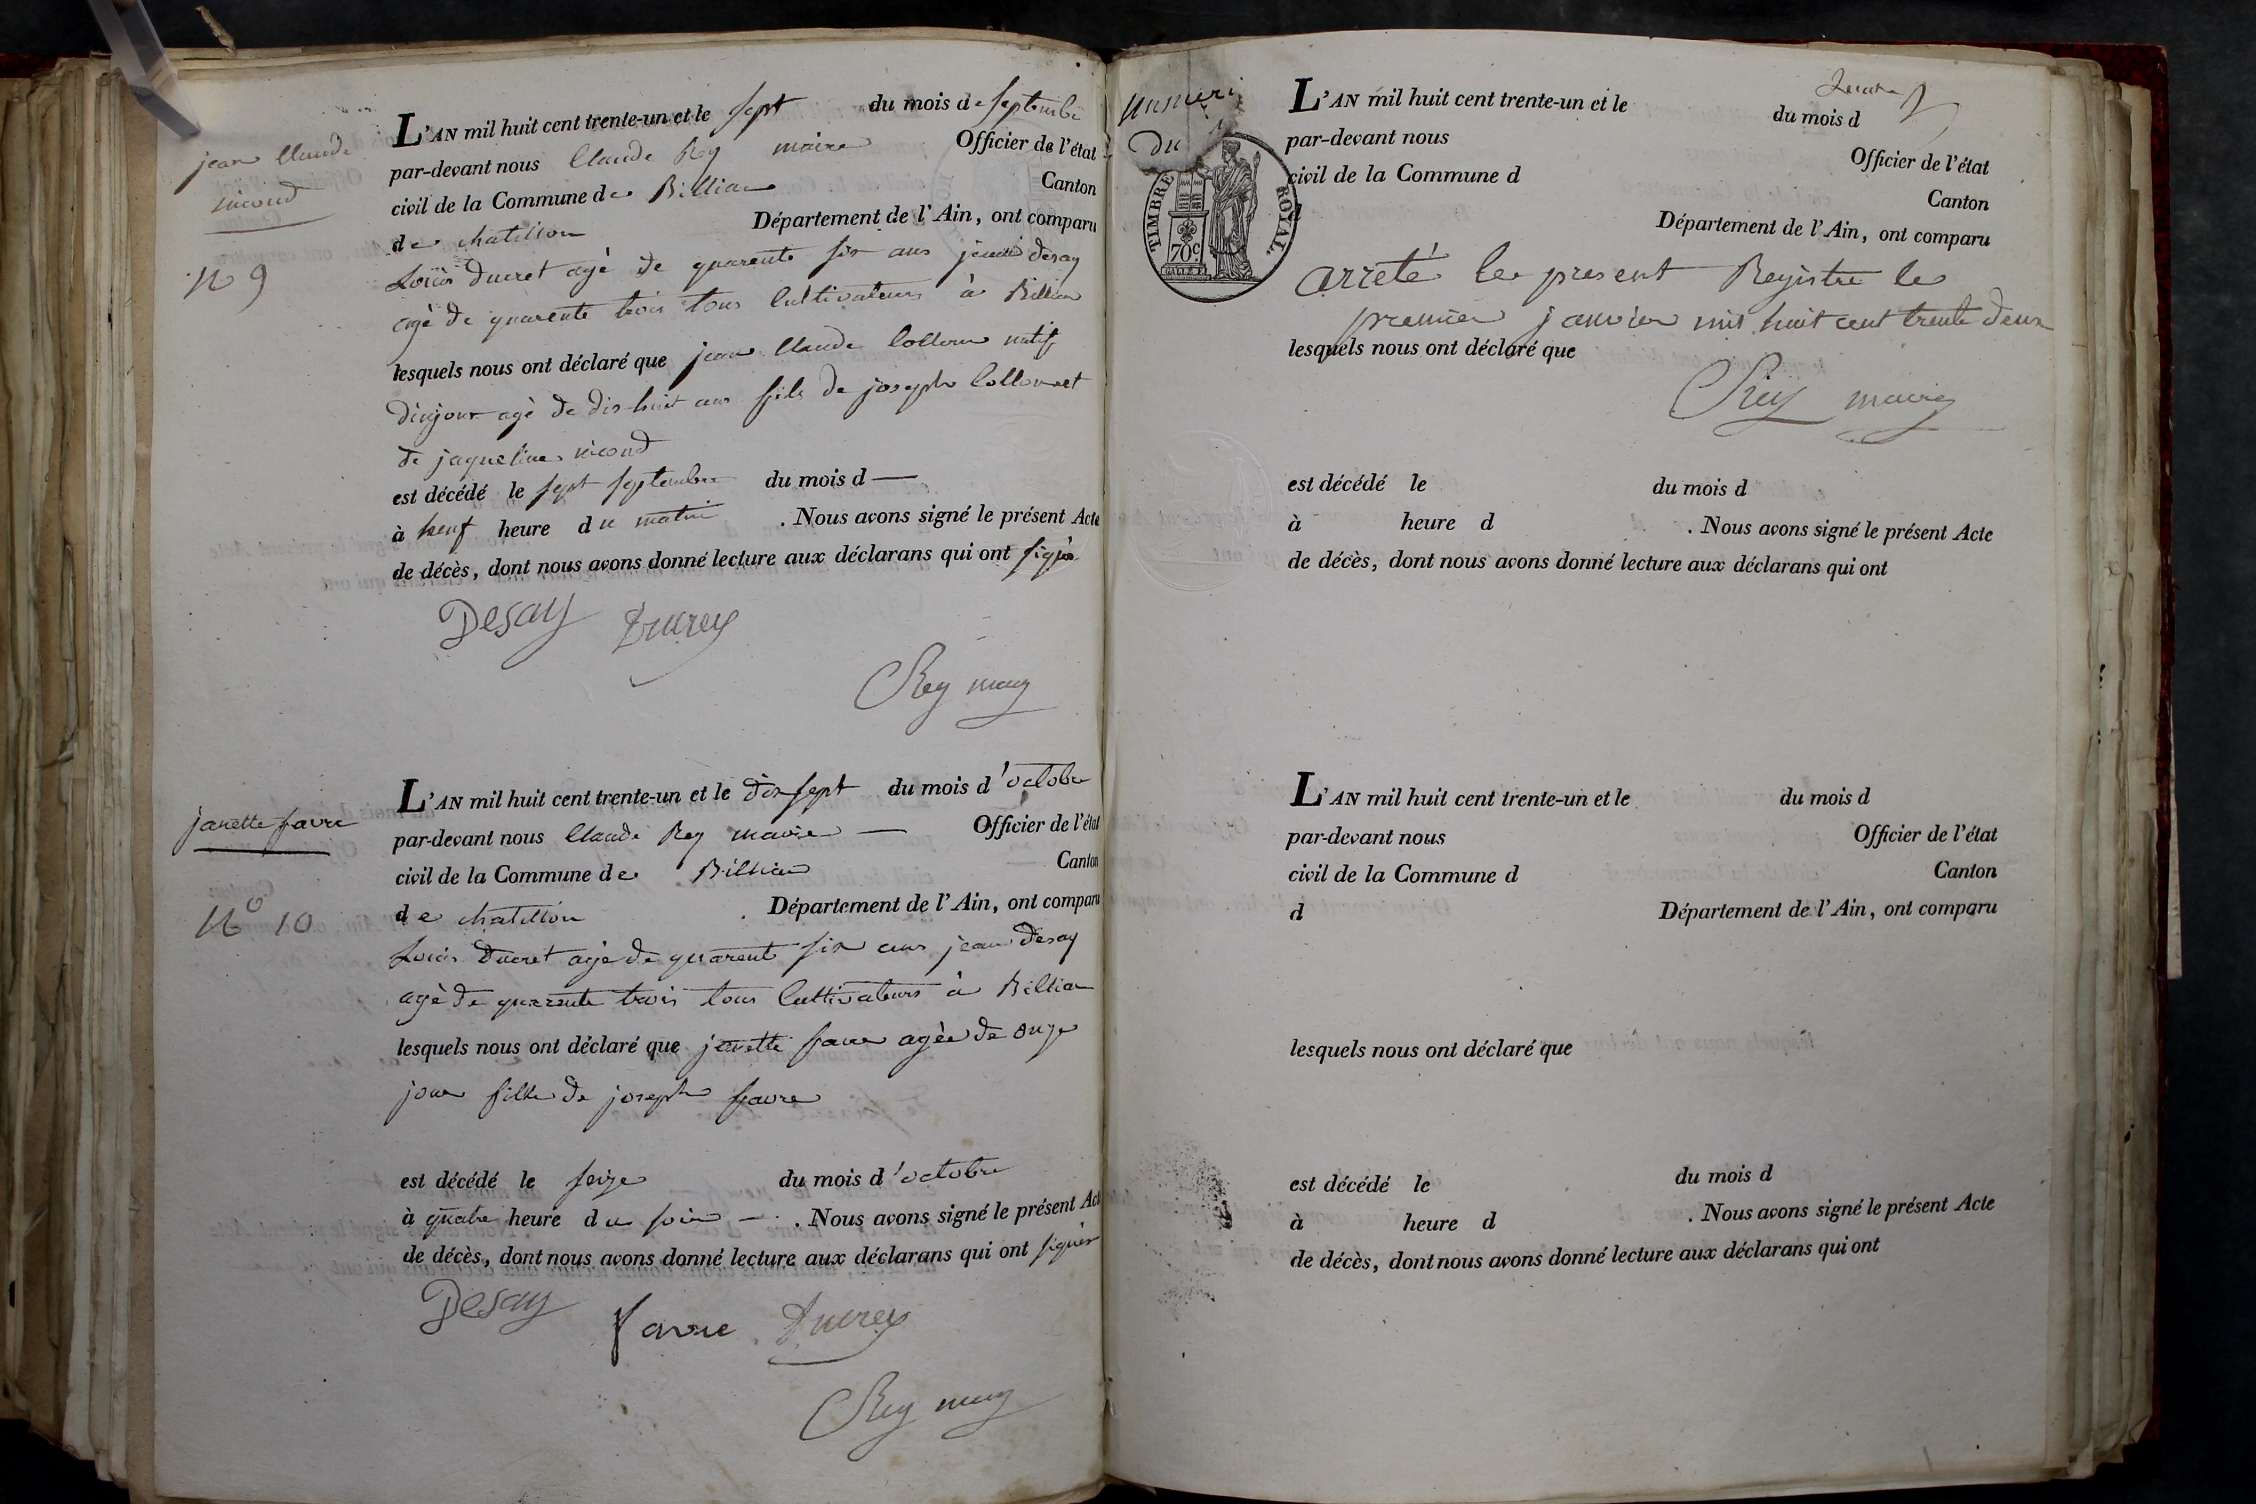 jean Claude
nicoud
N 9
L'AN mil huit cent trente-un et le sept du mois de septembre
par-devant nous Claude Rey maire Officier de l'état
civil de la Commune de Billiau Canton
de chatillon Département de l'Ain, ont comparu
Louis Ducret agé de quarente six ans jean desay
agé de quarente trois tous Cultivateurs à Billiau
lesquels nous ont déclaré que jean Claude natif
dinjoux agé de dix huit ans fils de joseph et
de jaqueline nicoud
est décédé le sept septembre du mois d —
à neuf heure du matin . Nous avons signé le présent Acte
de décès, dont nous avons donné lecture aux déclarans qui ont signé
Desay Ducrey
Rey maire
janette favre
No 10
L'AN mil huit cent trente-un et le dix sept du mois d'octobre
par-devant nous Claude Rey maire — Officier de l'état
civil de la Commune de Billiau Canton
de chatillon Département de l'Ain, ont comparu
Louis Ducret agé de quarente six ans jean Desay
agé de quarente trois tous Cultivateurs à Billiau
lesquels nous ont déclaré que janette favre agée de onze
jour fille de joseph favre
est décédé le seize du mois d'octobre
à quatre heure du soir — . Nous avons signé le présent Acte
de décès, dont nous avons donné lecture aux déclarans qui ont signés
Desay favre Ducrey
Rey maire
du
TIMBRE ROYAL
70c
L'AN mil huit cent trente-un et le du mois d
par-devant nous Officier de l'état
civil de la Commune d Canton
Département de l'Ain, ont comparu
arreté le present Registre le
premier janvier mil huit cent trente deux
lesquels nous ont déclaré que
Rey maire
est décédé le du mois d
à heure d . Nous avons signé le présent Acte
de décès, dont nous avons donné lecture aux déclarans qui ont
L'AN mil huit cent trente-un et le du mois d
par-devant nous Officier de l'état
civil de la Commune d Canton
d Département de l'Ain, ont comparu
lesquels nous ont déclaré que
est décédé le du mois d
à heure d . Nous avons signé le présent Acte
de décès, dont nous avons donné lecture aux déclarans qui ont